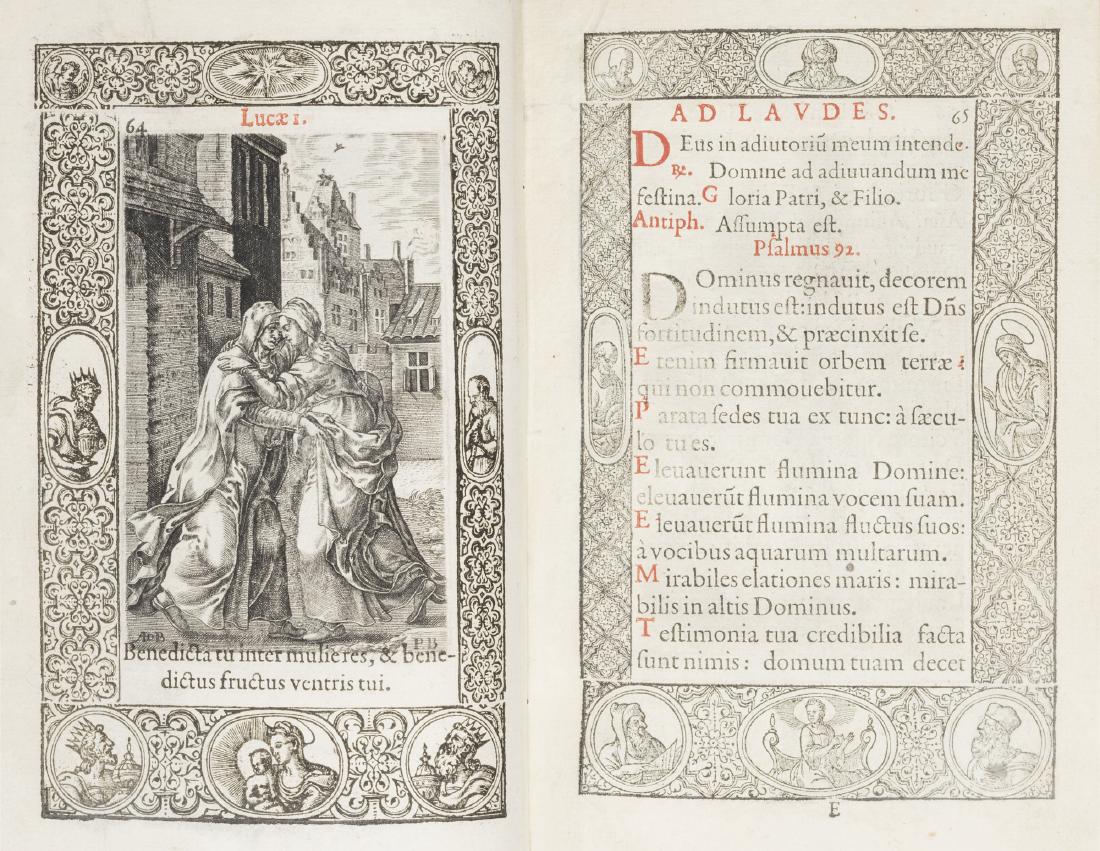 Lucæ 1.
64
ADB
PB
Benedicta tu inter mulieres, & bene-
dictus fructus ventris tui.
AD LAVDES.
65
DEus in adiutoriũ meum intende.
℞. Domine ad adiuuandum me
feſtina. Gloria Patri, & Filio.
Antiph. Aſſumpta eſt.
Pſalmus 92.
DOminus regnauit, decorem
indutus eſt: indutus eſt Dñs
fortitudinem, & præcinxit ſe.
Etenim firmauit orbem terræ:
qui non commouebitur.
Parata ſedes tua ex tunc: à ſæcu-
lo tu es.
Eleuauerunt flumina Domine:
eleuauerũt flumina vocem ſuam.
Eleuauerũt flumina fluctus ſuos:
à vocibus aquarum multarum.
Mirabiles elationes maris: mira-
bilis in altis Dominus.
Teſtimonia tua credibilia facta
ſunt nimis: domum tuam decet
E